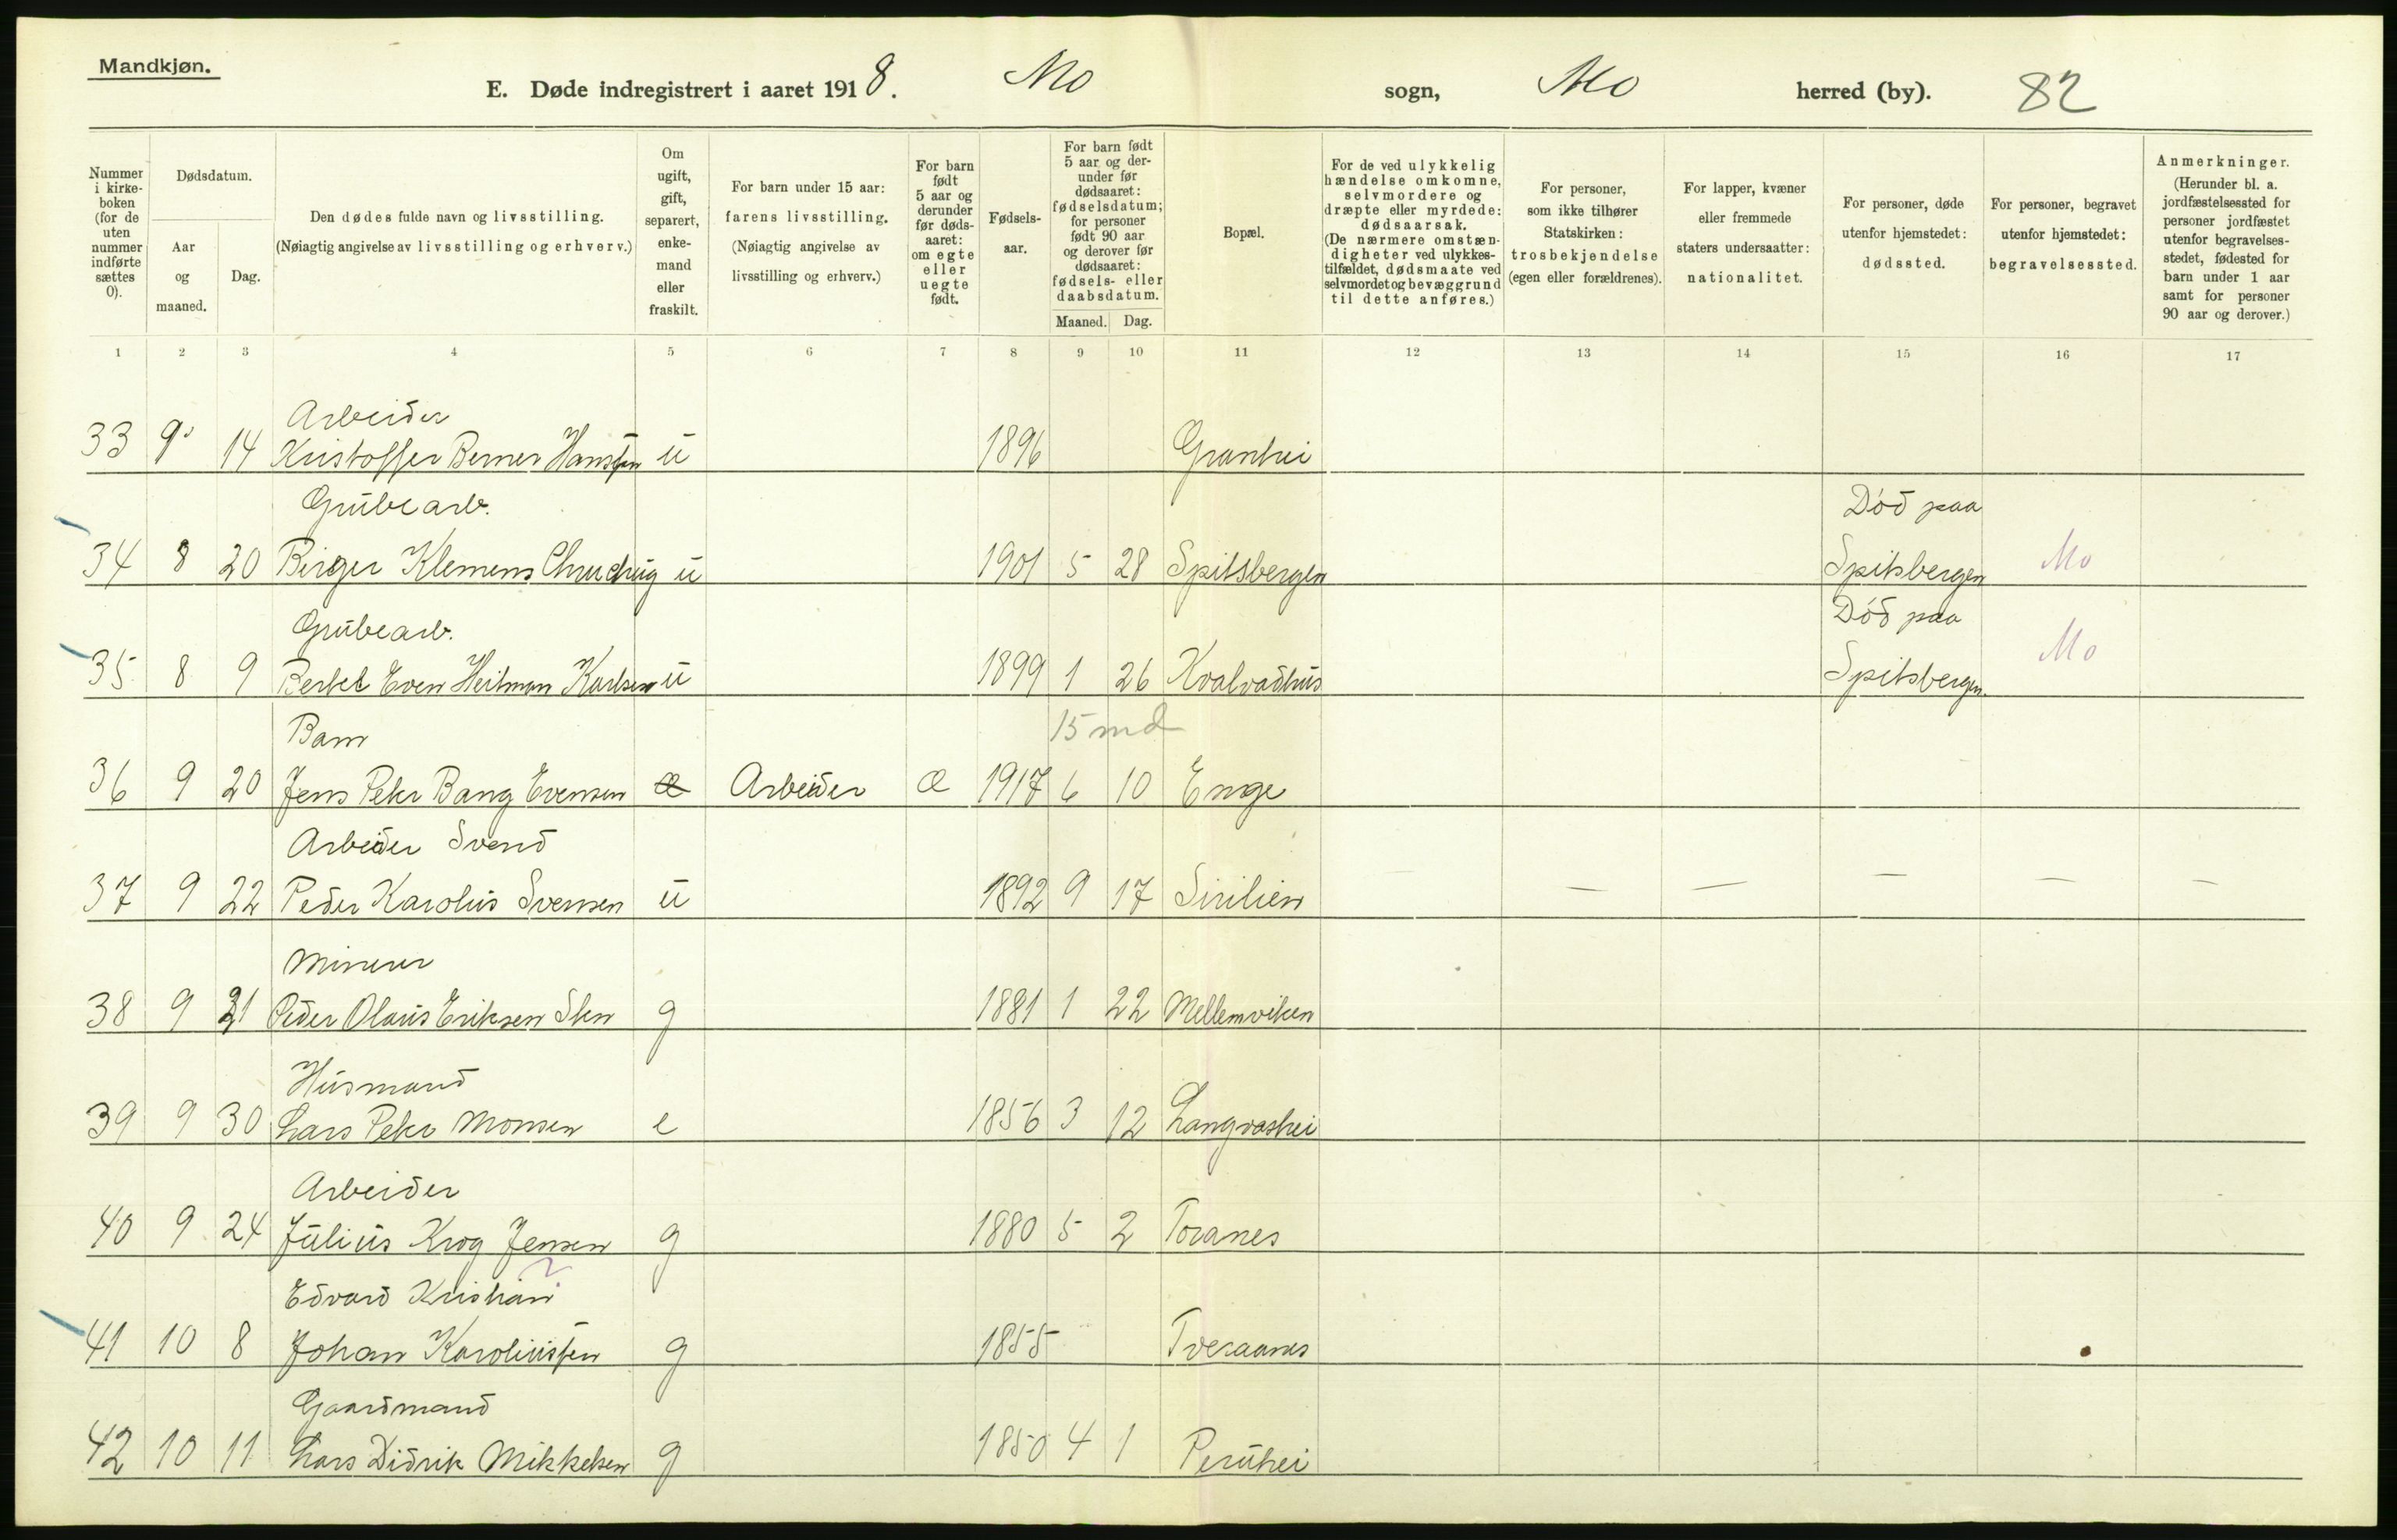 Mandkjøn.
E. Døde indregistrert i aaret 1918. Mo sogn, Mo herred (by). 82
Nummer i kirkeboken (for de uten nummer indførte sættes 0).
Dødsdatum.
Aar og maaned.
Dag.
Den dødes fulde navn og livsstilling.
(Nøiagtig angivelse av livsstilling og erhverv.)
Om ugift, gift, separert, enkemand eller fraskilt.
For barn under 15 aar: farens livsstilling. (Nøiagtig angivelse av livsstilling og erhverv.)
For barn født 5 aar og derunder før dødsaaret: om egte eller uegte født.
Fødselsaar.
For barn født 5 aar og derunder før dødsaaret: fødselsdatum; for personer født 90 aar og derover før dødsaaret: fødsels- eller daabsdatum.
Maaned. Dag.
Bopæl.
For de ved ulykkelig hændelse omkomne, selvmordere og dræpte eller myrdede: dødsaarsak. (De nærmere omstændigheter ved ulykkestilfældet, dødsmaate ved selvmordet og bevæggrund til dette anføres.)
For personer, som ikke tilhører Statskirken: trosbekjendelse (egen eller forældrenes).
For lapper, kvæner eller fremmede staters undersaatter: nationalitet.
For personer, døde utenfor hjemstedet: dødssted.
For personer, begravet utenfor hjemstedet: begravelsessted.
Anmerkninger. (Herunder bl. a. jordfæstelsessted for personer jordfæstet utenfor begravelsesstedet, fødested for barn under 1 aar samt for personer 90 aar og derover.)
1 2 3 4 5 6 7 8 9 10 11 12 13 14 15 16 17
Arbeider
33 9 14 Kristoffer Berner Hanssen u 1896 Granhei
Grubearb. Död paa
34 8 20 Birger Klemens u 1901 5 28 Spitsbergen Spitsbergen Mo
Grubearb. Död paa
35 8 9 Bertel Even Heitman Karlsen u 1899 1 26 Kvalvadhus Spitsbergen. Mo
Barn 15 md
36 9 20 Jens Peter Bang Evensen æ Arbeider æ 1917 6 10 Enge
Arbeider Svend
37 9 22 Peder Karolius Svensen u 1892 9 17 Sirilien — — — — — —
Minerer
38 9 21 Peder Olaus Eriksen Sten g 1881 1 22 Mellemviken
Husmand
39 9 30 Lars Peter Monsen e 1856 3 12 Langvashei
Arbeider
40 9 24 Julius Krog Jensen g 1880 5 2 Toranes
Edvard Kristian
41 10 8 Johan Karoliussen g 1855 Tveraanes
Gaardmand
42 10 11 Lars Didrik Mikkelsen g 1850 4 1 Peruhei